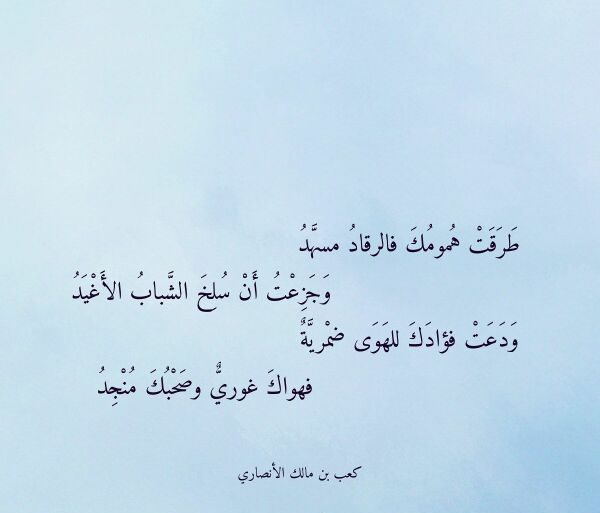 طَرَقَتْ هُمومُكَ فالرقادُ مسهَّدُ
وَجَزِعْتُ أَنْ سُلخَ الشَّبابُ الأَغْيَدُ
وَدَعَتْ فؤادَكَ للهَوَى ضمْريَّةٌ
فهواكَ غوريٌّ وصَحْبُكَ مُنْجِدُ
كعب بن مالك الأنصاري